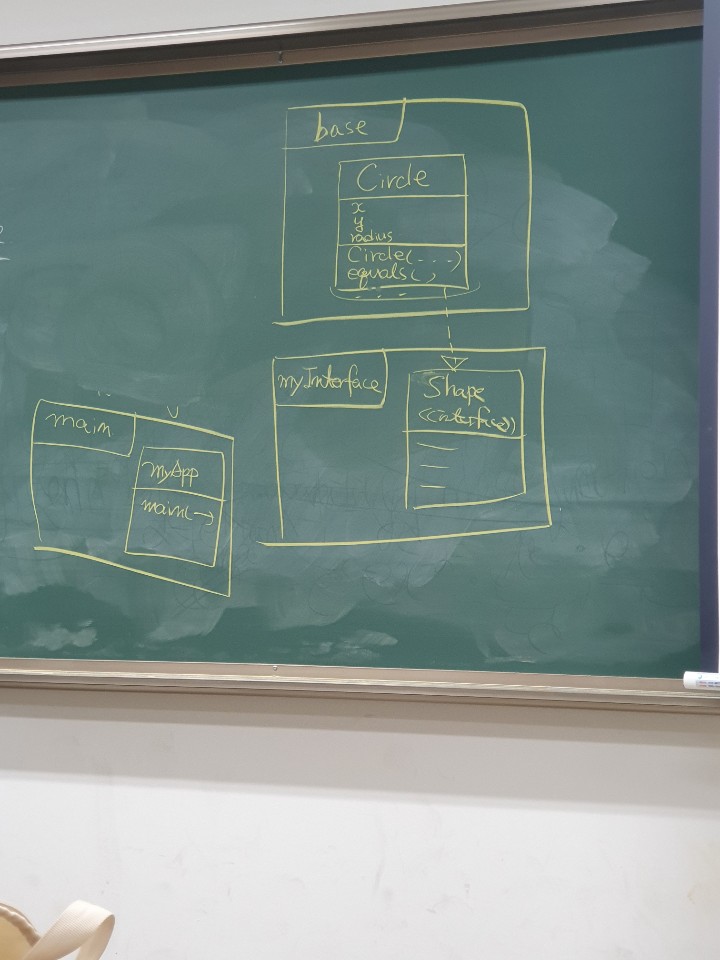 base
Circle
x
y
radius
Circle(...)
equals()
...
myInterface
Shape
<<interface>>
main
myApp
main(